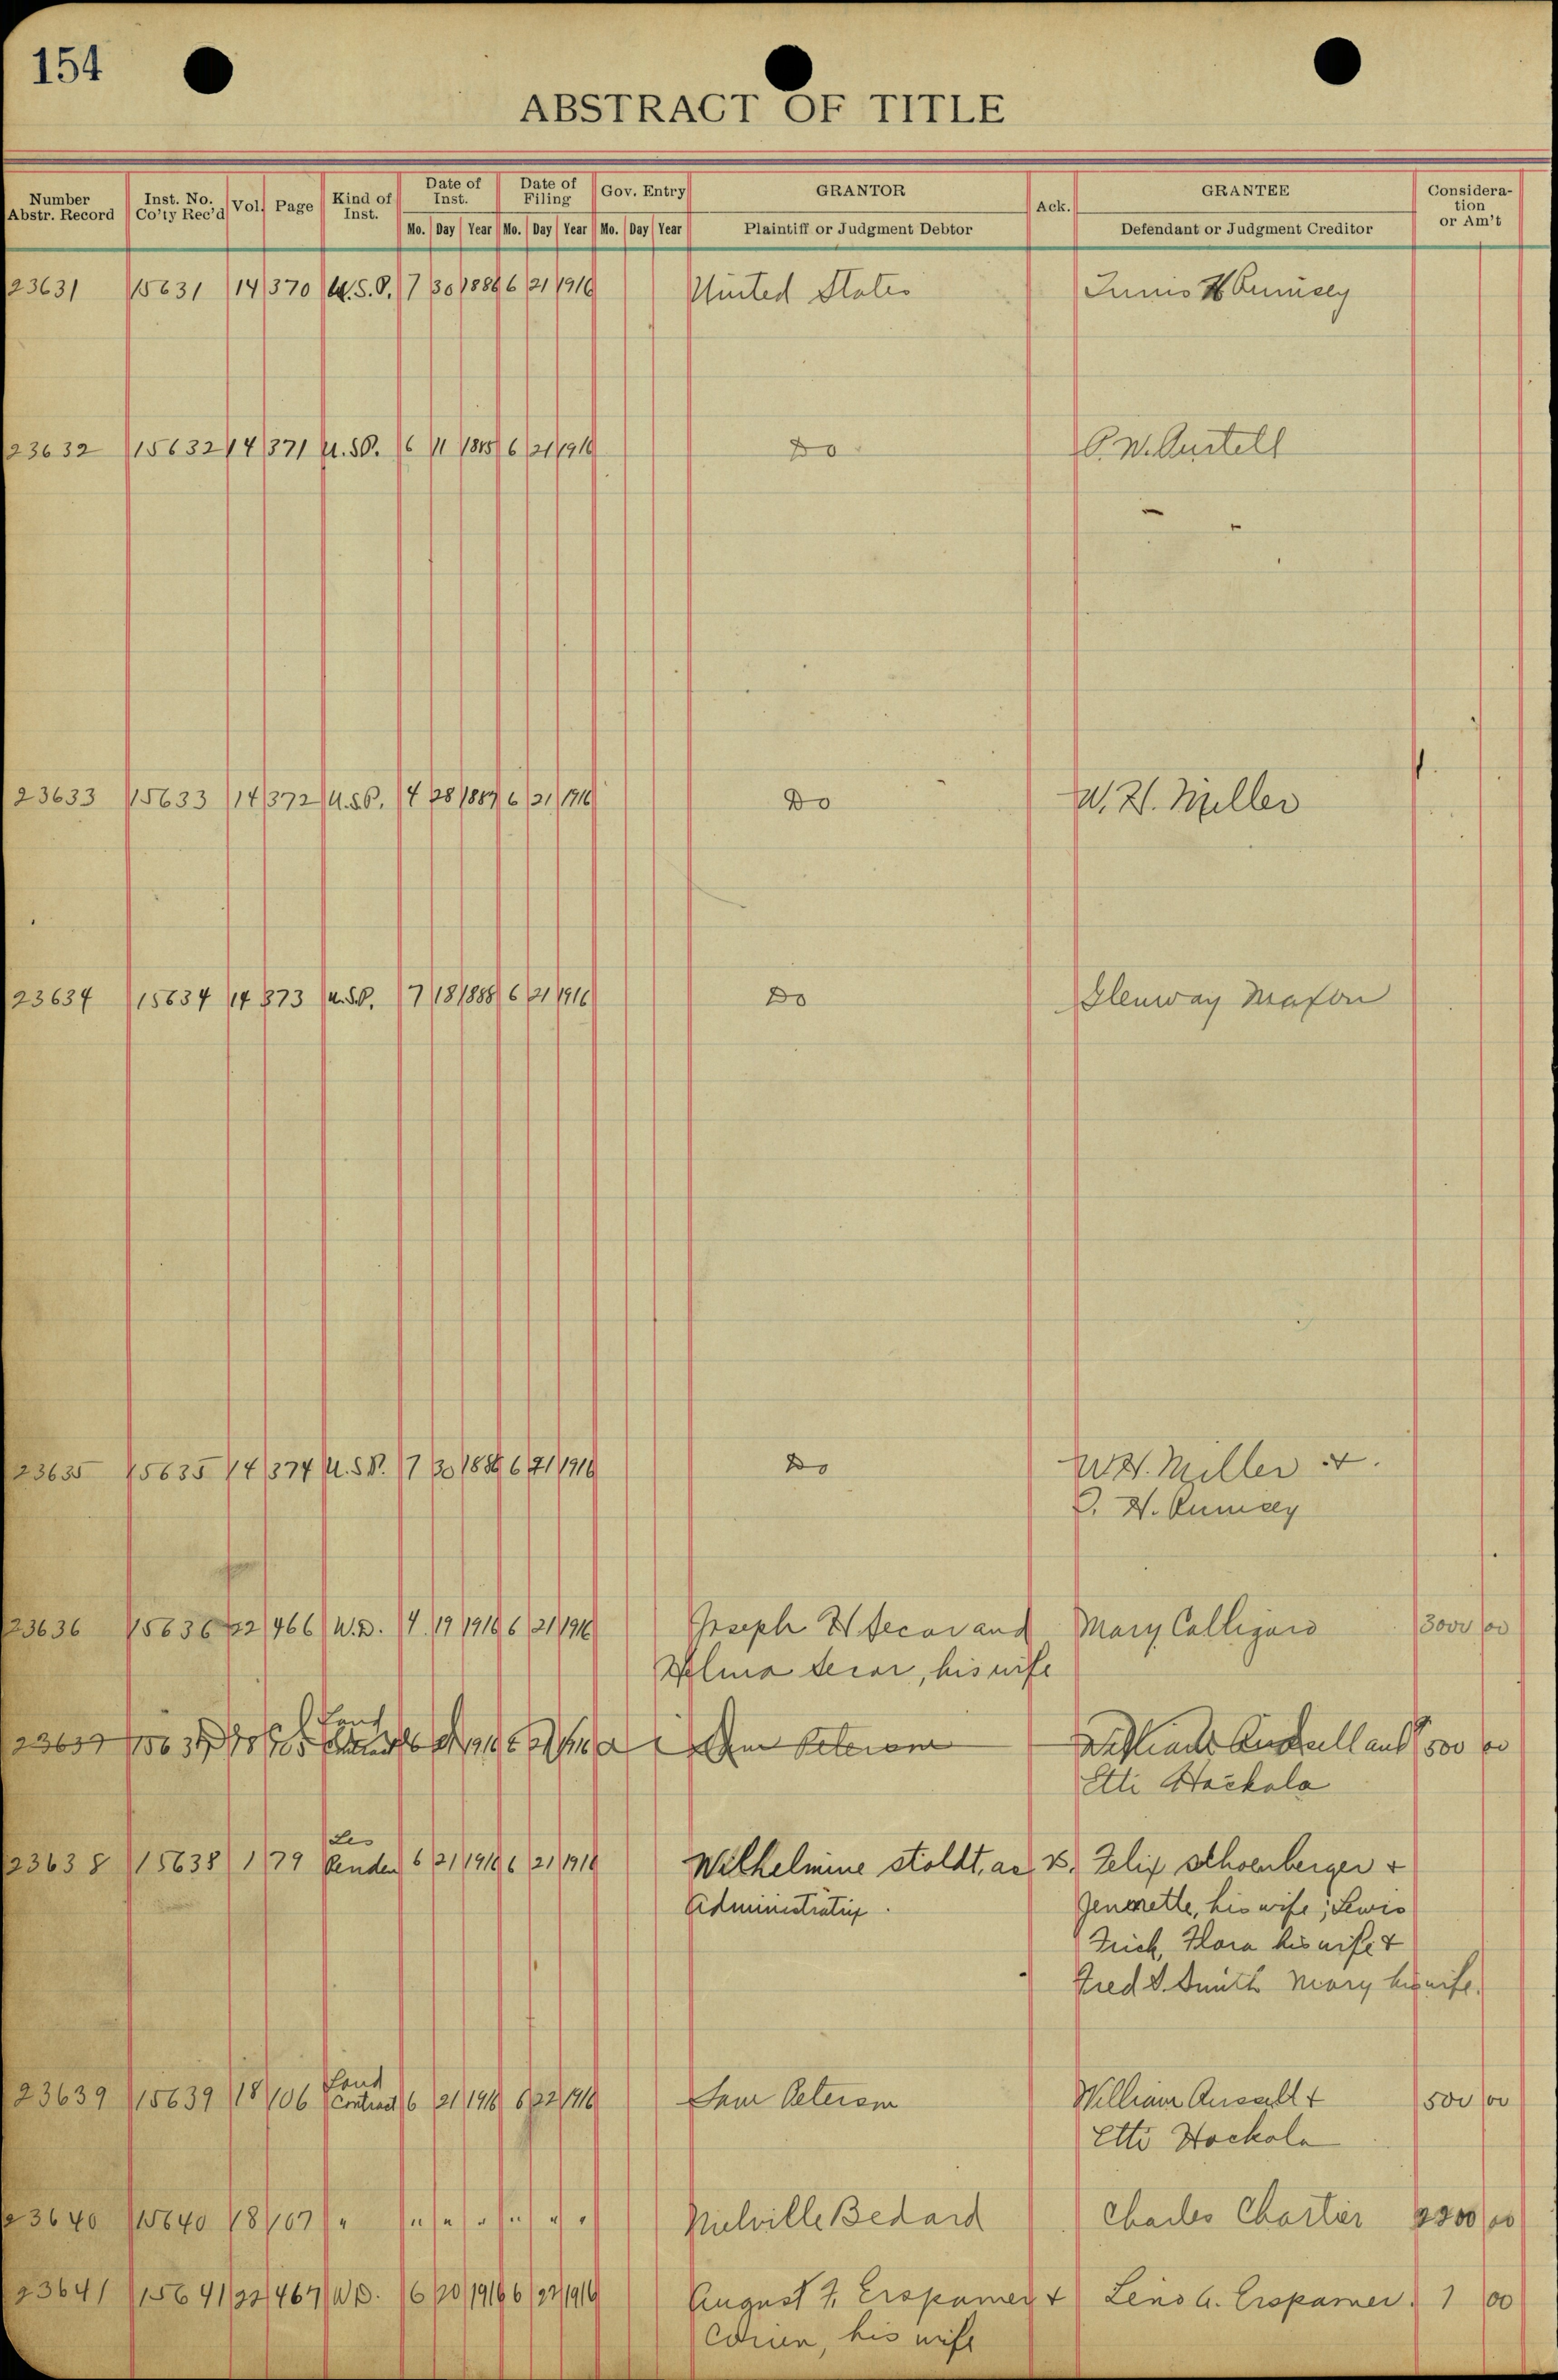 154
ABSTRACT OF TITLE
Number Abstr. Record Inst. No. Co'ty Rec'd Vol. Page Kind of Inst. Date of Inst. Date of Filing Gov. Entry GRANTOR Ack. GRANTEE Consideration or Am't
Mo. Day Year Mo. Day Year Mo. Day Year Plaintiff or Judgment Debtor Defendant or Judgment Creditor
23631 15631 14 370 U.S.P. 7 30 1886 6 21 1916 United States H
23632 15632 14 371 U.S.P. 6 11 1885 6 21 1916 Do P. W. Austell
23633 15633 14 372 U.S.P. 4 28 1887 6 21 1916 Do W. H. Miller
23634 15634 14 373 U.S.P. 7 18 1888 6 21 1916 Do Glenway Maxon
23635 15635 14 374 U.S.P. 7 30 1886 6 21 1916 Do W. H. Miller &
J. H. Rumsey
23636 15636 22 466 W.D. 4 19 1916 6 21 1916 Joseph H Secor and Mary Calligaro 3000 00
Secor, his wife
23637 Land 500 00
Hackala
23638 15638 1 79 Les Penden 6 21 1916 6 21 1916 Wilhelmine Stoldt, as vs. Felix Schoenberger &
Administratrix. his wife; Lewis
Flora his wife &
Fred S. Smith Mary his wife.
23639 15639 18 106 Land Contract 6 21 1916 6 22 1916 Peterson William Ansell & 500 00
Hockola
23640 15640 18 107 " " " " " " " Melville Bedard Charles Chartier 2200 00
23641 15641 22 467 W.D. 6 20 1916 6 22 1916 August F. Erspamer & Leno G. Erspamer. 1 00
his wife